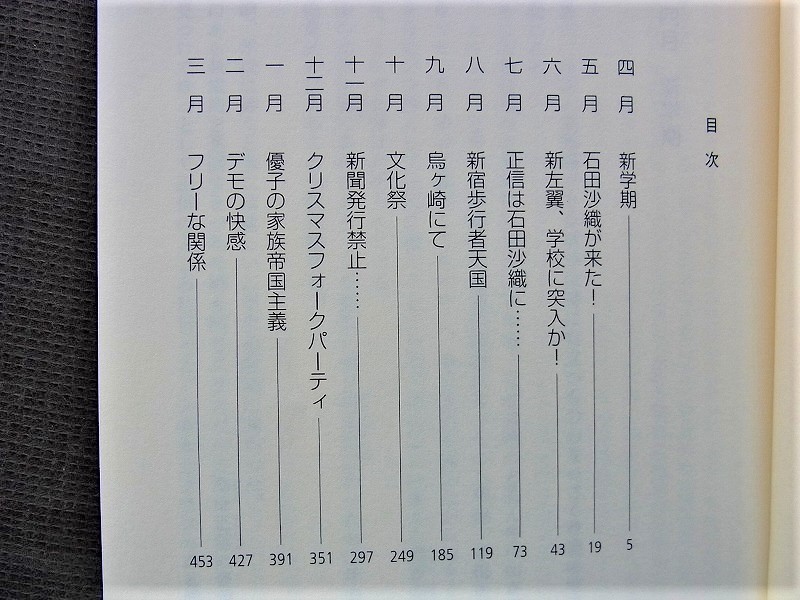 目次
四月 新学期 5
五月 石田沙織が来た! 19
六月 新左翼、学校に突入か! 43
七月 正信は石田沙織に…… 73
八月 新宿歩行者天国 119
九月 烏ヶ崎にて 185
十月 文化祭 249
十一月 新聞発行禁止…… 297
十二月 クリスマスフォークパーティ 351
一月 優子の家族帝国主義 391
二月 デモの快感 427
三月 フリーな関係 453